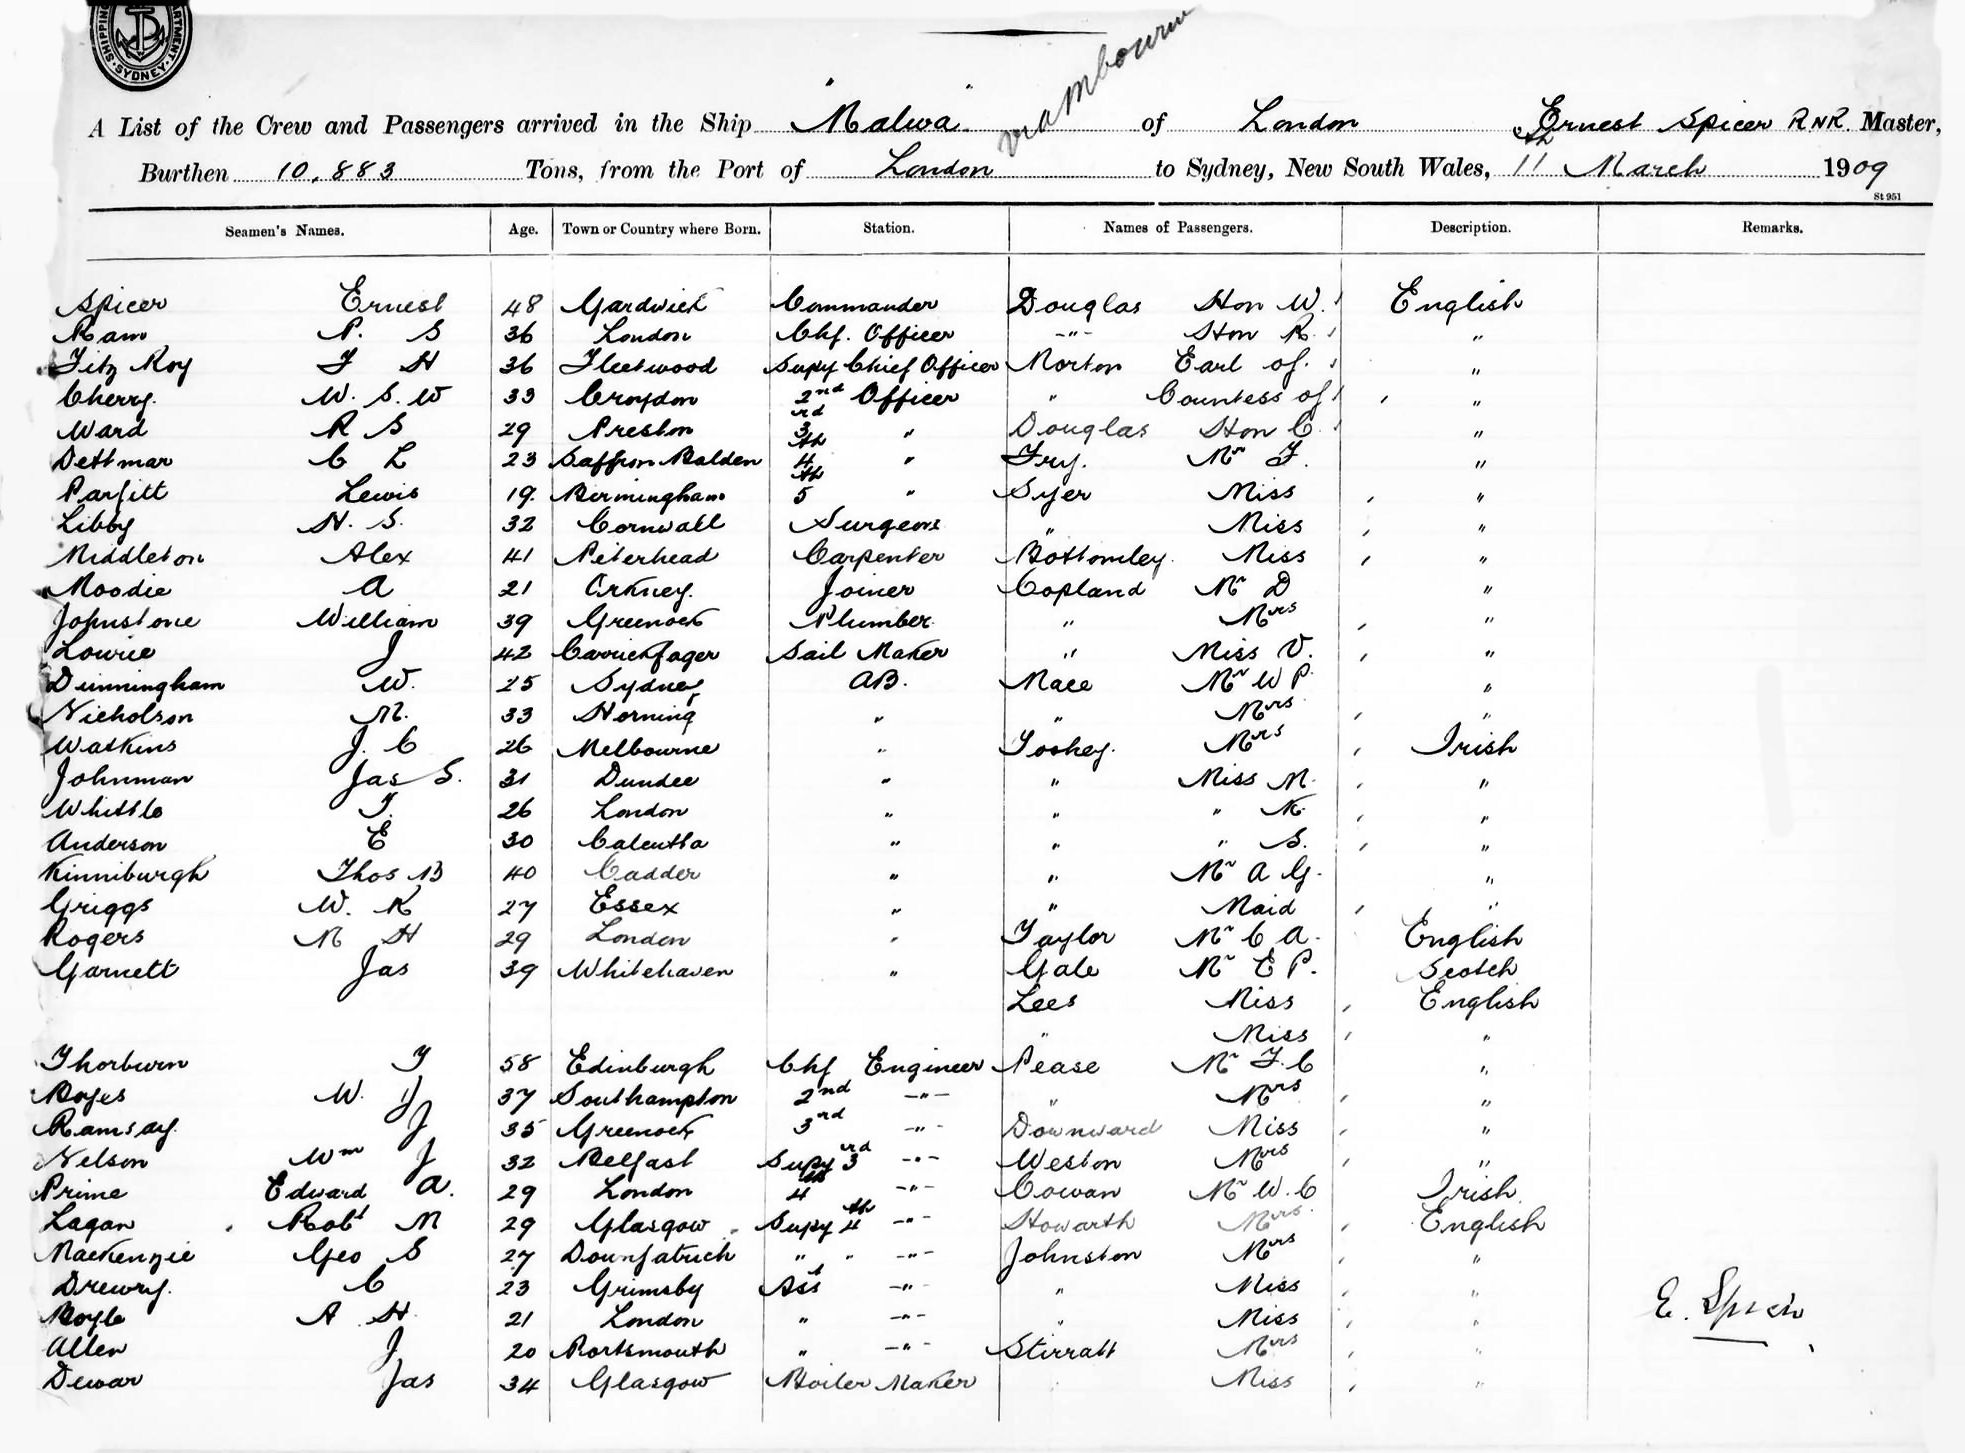 SHIPPING DEPARTMENT SYDNEY
via Mbourne
A List of the Crew and Passengers arrived in the Ship "Malwa" of London Ernest Spicer RNR Master,
Burthen 10,883 Tons, from the Port of London to Sydney, New South Wales, 11th March 1909
St 951
Seamen's Names. Age. Town or Country where Born. Station. Names of Passengers. Description. Remarks.
Spicer Ernest 48 Commander Douglas Hon W. English
Ram P. S 36 London Chf. Officer -"- Hon R. "
Fitz Roy F H 36 Fleetwood Supy Chief Officer Morton Earl of. "
Cherry. W. S. W 33 Croydon 2nd Officer " Countess of "
Ward R S 29 Preston 3rd " Douglas Hon C. "
Dettmar C L 23 Saffron Balden 4th " Fry. Mr F. "
Parfitt Lewis 19. Birmingham 5th " Syer Miss "
Libby H. S. 32 Cornwall Surgeon " Miss "
Middleton Alex 41 Peterhead Carpenter Bottomley. Miss "
Moodie A 21 Orkney. Joiner Copland Mr D "
Johnstone William 39 Greenock Plumber. " Mrs "
Lowrie J 42 Carrickfager Sail Maker " Miss V. "
Dunningham W. 25 Sydney AB. Mace Mr W P. "
Nicholson M. 33 Horning " " Mrs "
Watkins J. C 26 Melbourne " Tookey. Mrs Irish
Johnman Jas S. 31 Dundee " " Miss M. "
Whittle T. 26 London " " " K. "
Anderson E 30 Calcutta " " " S. "
Kinniburgh Thos B 40 Cadder " " Mr A G. "
Griggs W. K 27 Essex " " Maid "
Rogers M H 29 London " Taylor Mr C A. English
Garnett Jas 39 Whitehaven " Gale Mr E P. Scotch
Lees Miss English
" Miss "
Thorburn T 58 Edinburgh Chf Engineer Pease Mr F. C "
Boyes W. J 37 Southampton 2nd -"- " Mrs "
Ramsay. J 35 Greenock 3rd -"- Downward Miss "
Nelson Wm J 32 Belfast Supy 3rd -"- Weston Mrs "
Prime Edward A. 29 London 4th -"- Cowan Mr W. C Irish
Lagan Robt M 29 Glasgow Supy 4th -"- Howarth Mrs. English
Mackenzie Geo S 27 Downpatrick " " -"- Johnston Mrs "
Drewry. C 23 Grimsby Asst -"- " Miss "
Boyle A H. 21 London " -"- " Miss "
Allen J 20 Portsmouth " -"- Stirratt Mrs "
Dewar Jas 34 Glasgow Boiler Maker " Miss "
E. Spicer